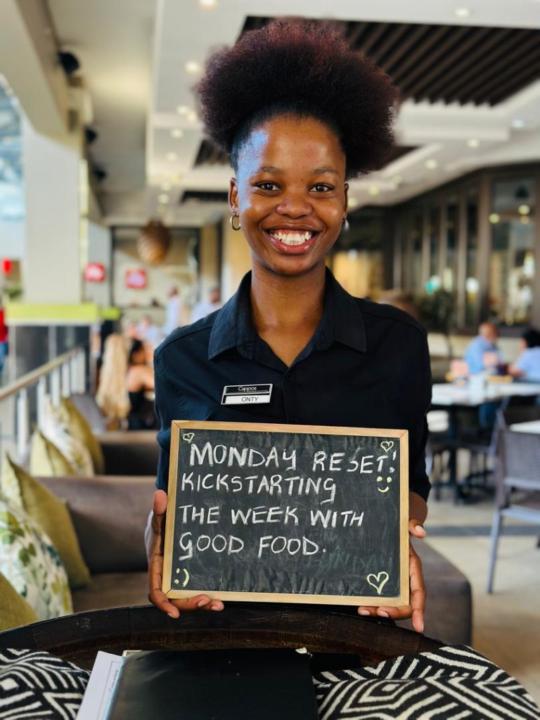 Cappos
ONTY
MONDAY RESET!
KICKSTARTING
THE WEEK WITH
GOOD FOOD.